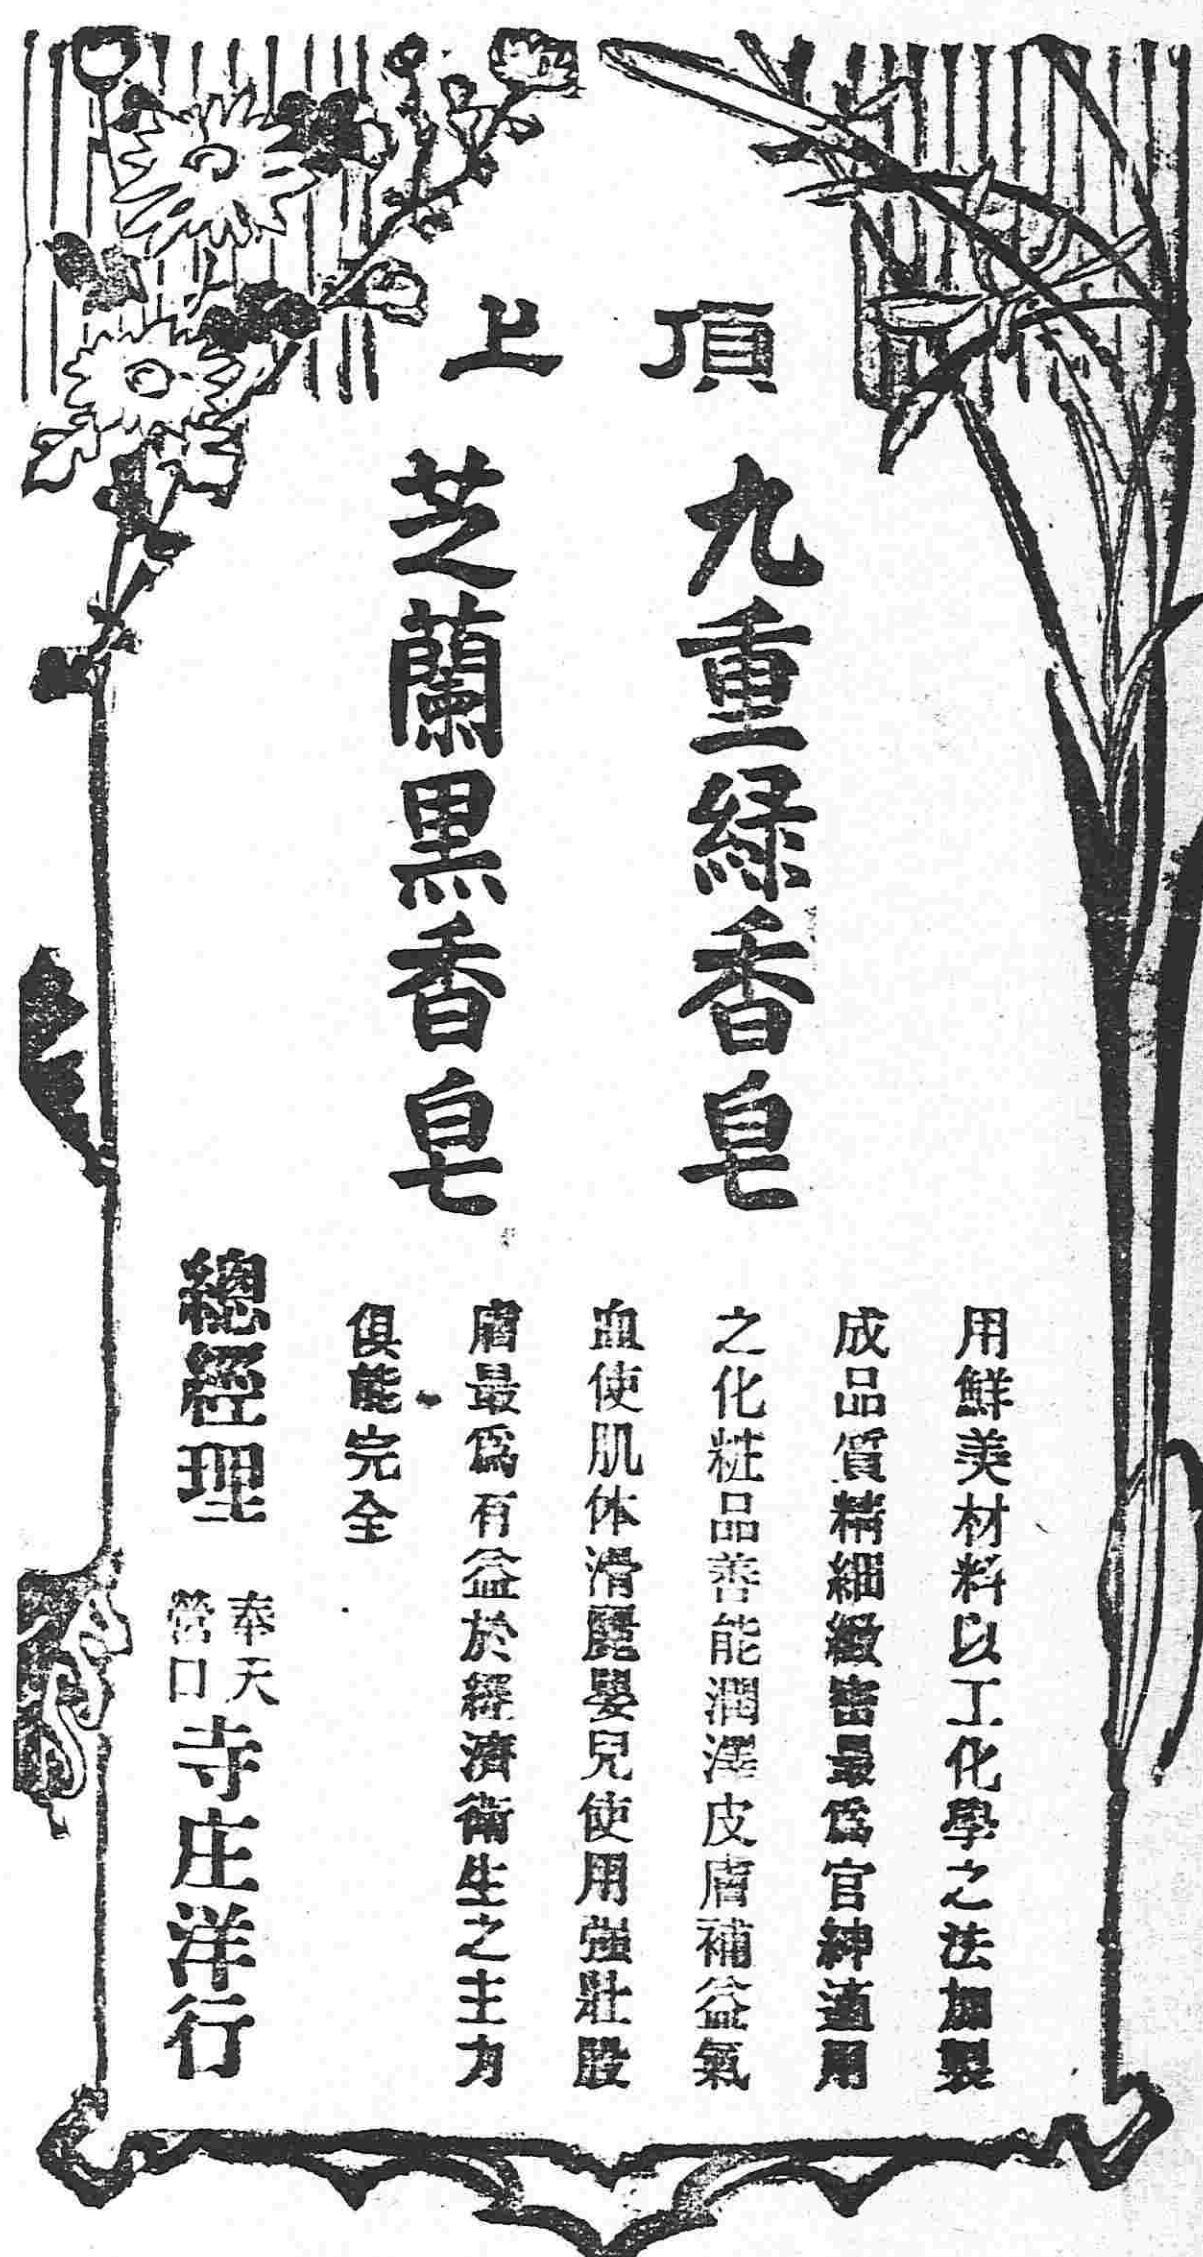 頂上
九重綠香皂
芝蘭黑香皂
用鮮美材料以工化學之法加製
成品質精細緻密最爲官紳適用
之化粧品善能潤澤皮膚補益氣
血使肌体滑麗嬰兒使用强壯股
膚最爲有益於經濟衛生之主力
俱能完全
總經理
奉天
營口
寺庄洋行